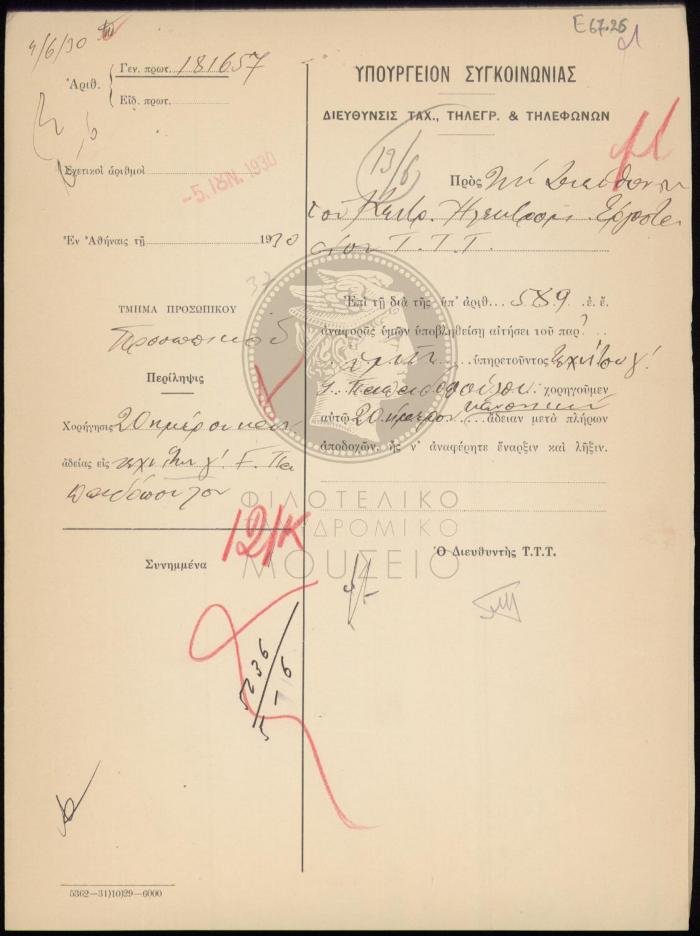 4/6/30
E 67.26
21
Ἀριθ.
Γεν. πρωτ. 181657
Εἰδ. πρωτ.
Σχετικοὶ ἀριθμοί
-5. ΙΟΥΝ. 1930
Ἐν Ἀθήναις τῇ 1930
ΤΜΗΜΑ ΠΡΟΣΩΠΙΚΟΥ
Προσωπικοῦ
Περίληψις
Χορήγησις 20ημέρου καν.
ἀδείας εἰς τεχνίτην γ΄. Γ. Πα
παδόπουλον
Συνημμένα
12/Κ
5236
5-6
5362—31)10)29—6000
ΥΠΟΥΡΓΕΙΟΝ ΣΥΓΚΟΙΝΩΝΙΑΣ
ΔΙΕΥΘΥΝΣΙΣ ΤΑΧ., ΤΗΛΕΓΡ. & ΤΗΛΕΦΩΝΩΝ
19/6
Πρὸς τὴν Διεύθυνσιν
τοῦ Κεντρ. Ἠλεκτρ. Ἐργοστα
σίου Τ.Τ.Τ.
Ἐπὶ τῇ διὰ τῆς ὑπ' ἀριθ. 589 ἐ. ἔ.
ἀναφορᾶς ὑμῶν ὑποβληθείσῃ αἰτήσει τοῦ παρ'
ὑμῖν ὑπηρετοῦντος τεχνίτου γ΄
Γ. Παπαδοπούλου χορηγοῦμεν
αὐτῷ 20ήμερον κανονικὴν ἄδειαν μετὰ πλήρων
ἀποδοχῶν, ἧς ν' ἀναφέρητε ἔναρξιν καὶ λῆξιν.
Ὁ Διευθυντὴς Τ.Τ.Τ.
ΦΙΛΟΤΕΛΙΚΟ
ΤΑΧΥΔΡΟΜΙΚΟ
ΜΟΥΣΕΙΟ